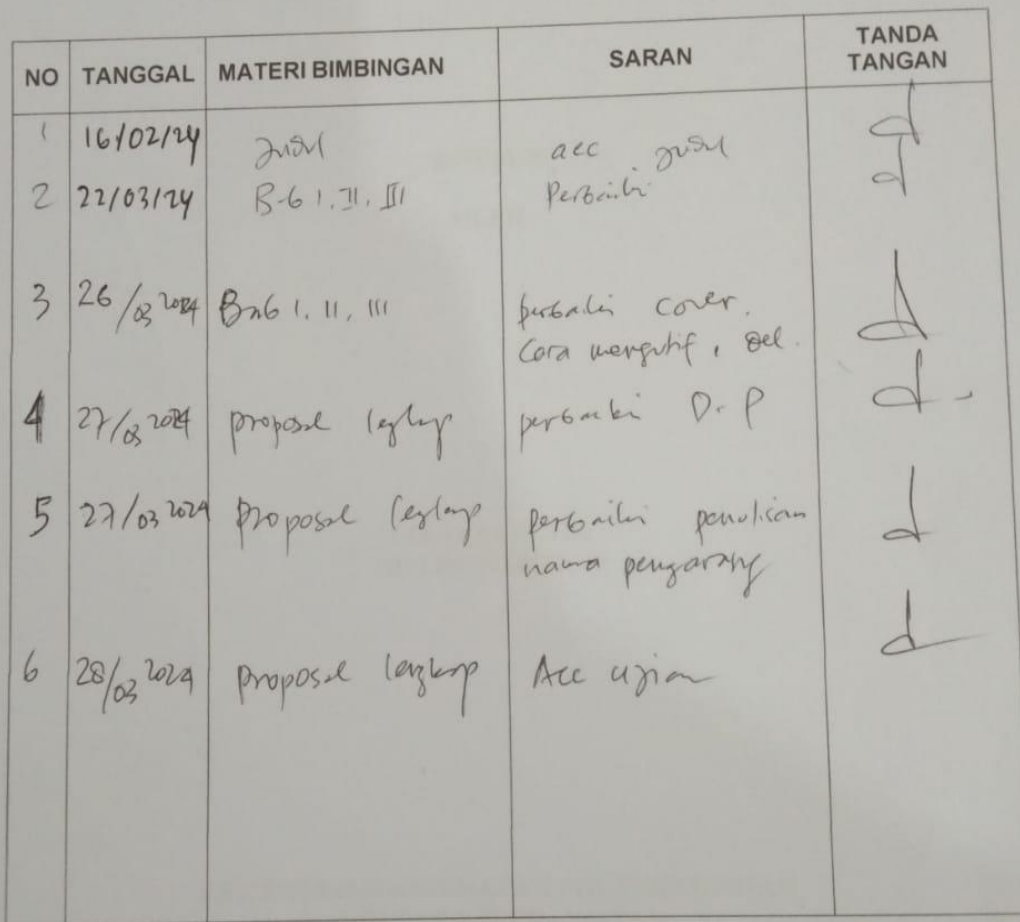 NO TANGGAL MATERI BIMBINGAN SARAN TANDA TANGAN
1 16/02/24 Judul acc judul
2 22/03/24 Bab I, II, III Perbaiki
3 26/03 2024 Bab I, II, III perbaiki cover.
Cara mengutif,
4 27/03 2024 proposal lengkap perbaiki D. P
5 27/03 2024 proposal lengkap perbaiki penulisan
nama pengarang
6 28/03 2024 proposal lengkap Acc ujian